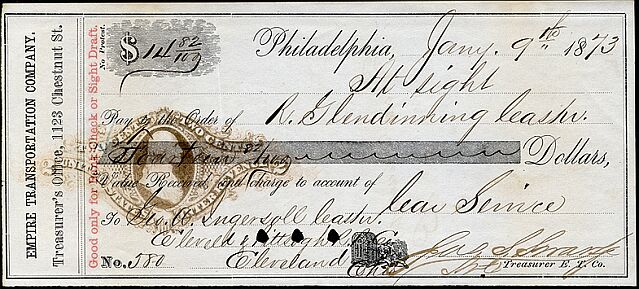 EMPIRE TRANSPORTATION COMPANY.
Treasurer's Office, 1123 Chestnut St.
Good only for Bank Check or Sight Draft.
No Protest.
$14 82/100
Philadelphia, Jany. 9th 1873
At sight
Pay to the Order of R. Glendinning Cashr.
Fourteen 82/100 Dollars,
Value Received, and Charge to account of Car Service
To Geo. A. Ingersoll Cashr.
Cleveld & Pittsburgh R. R. Co.
No. 380 Cleveland
Treasurer E. T. Co.